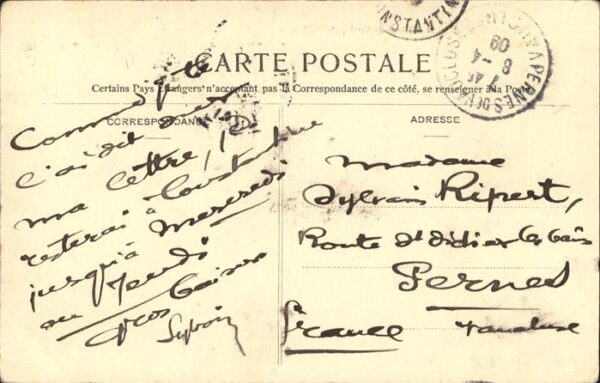 CONSTANTINE
PERNES DE VAUCLUSE
8 - 4
09
CARTE POSTALE
Certains Pays Etrangers n'acceptant pas la Correspondance de ce côté, se renseigner à la Poste
CORRESPONDANCE
ADRESSE
Comme je te
l'ai dit sur
ma lettre, je
resterai à Constantine
jusqu'à Mercredi
ou Jeudi
gros baisers
Sylvain
Madame
Sylvain Ripert,
Route St Didier les bains
Pernes
France
Vaucluse